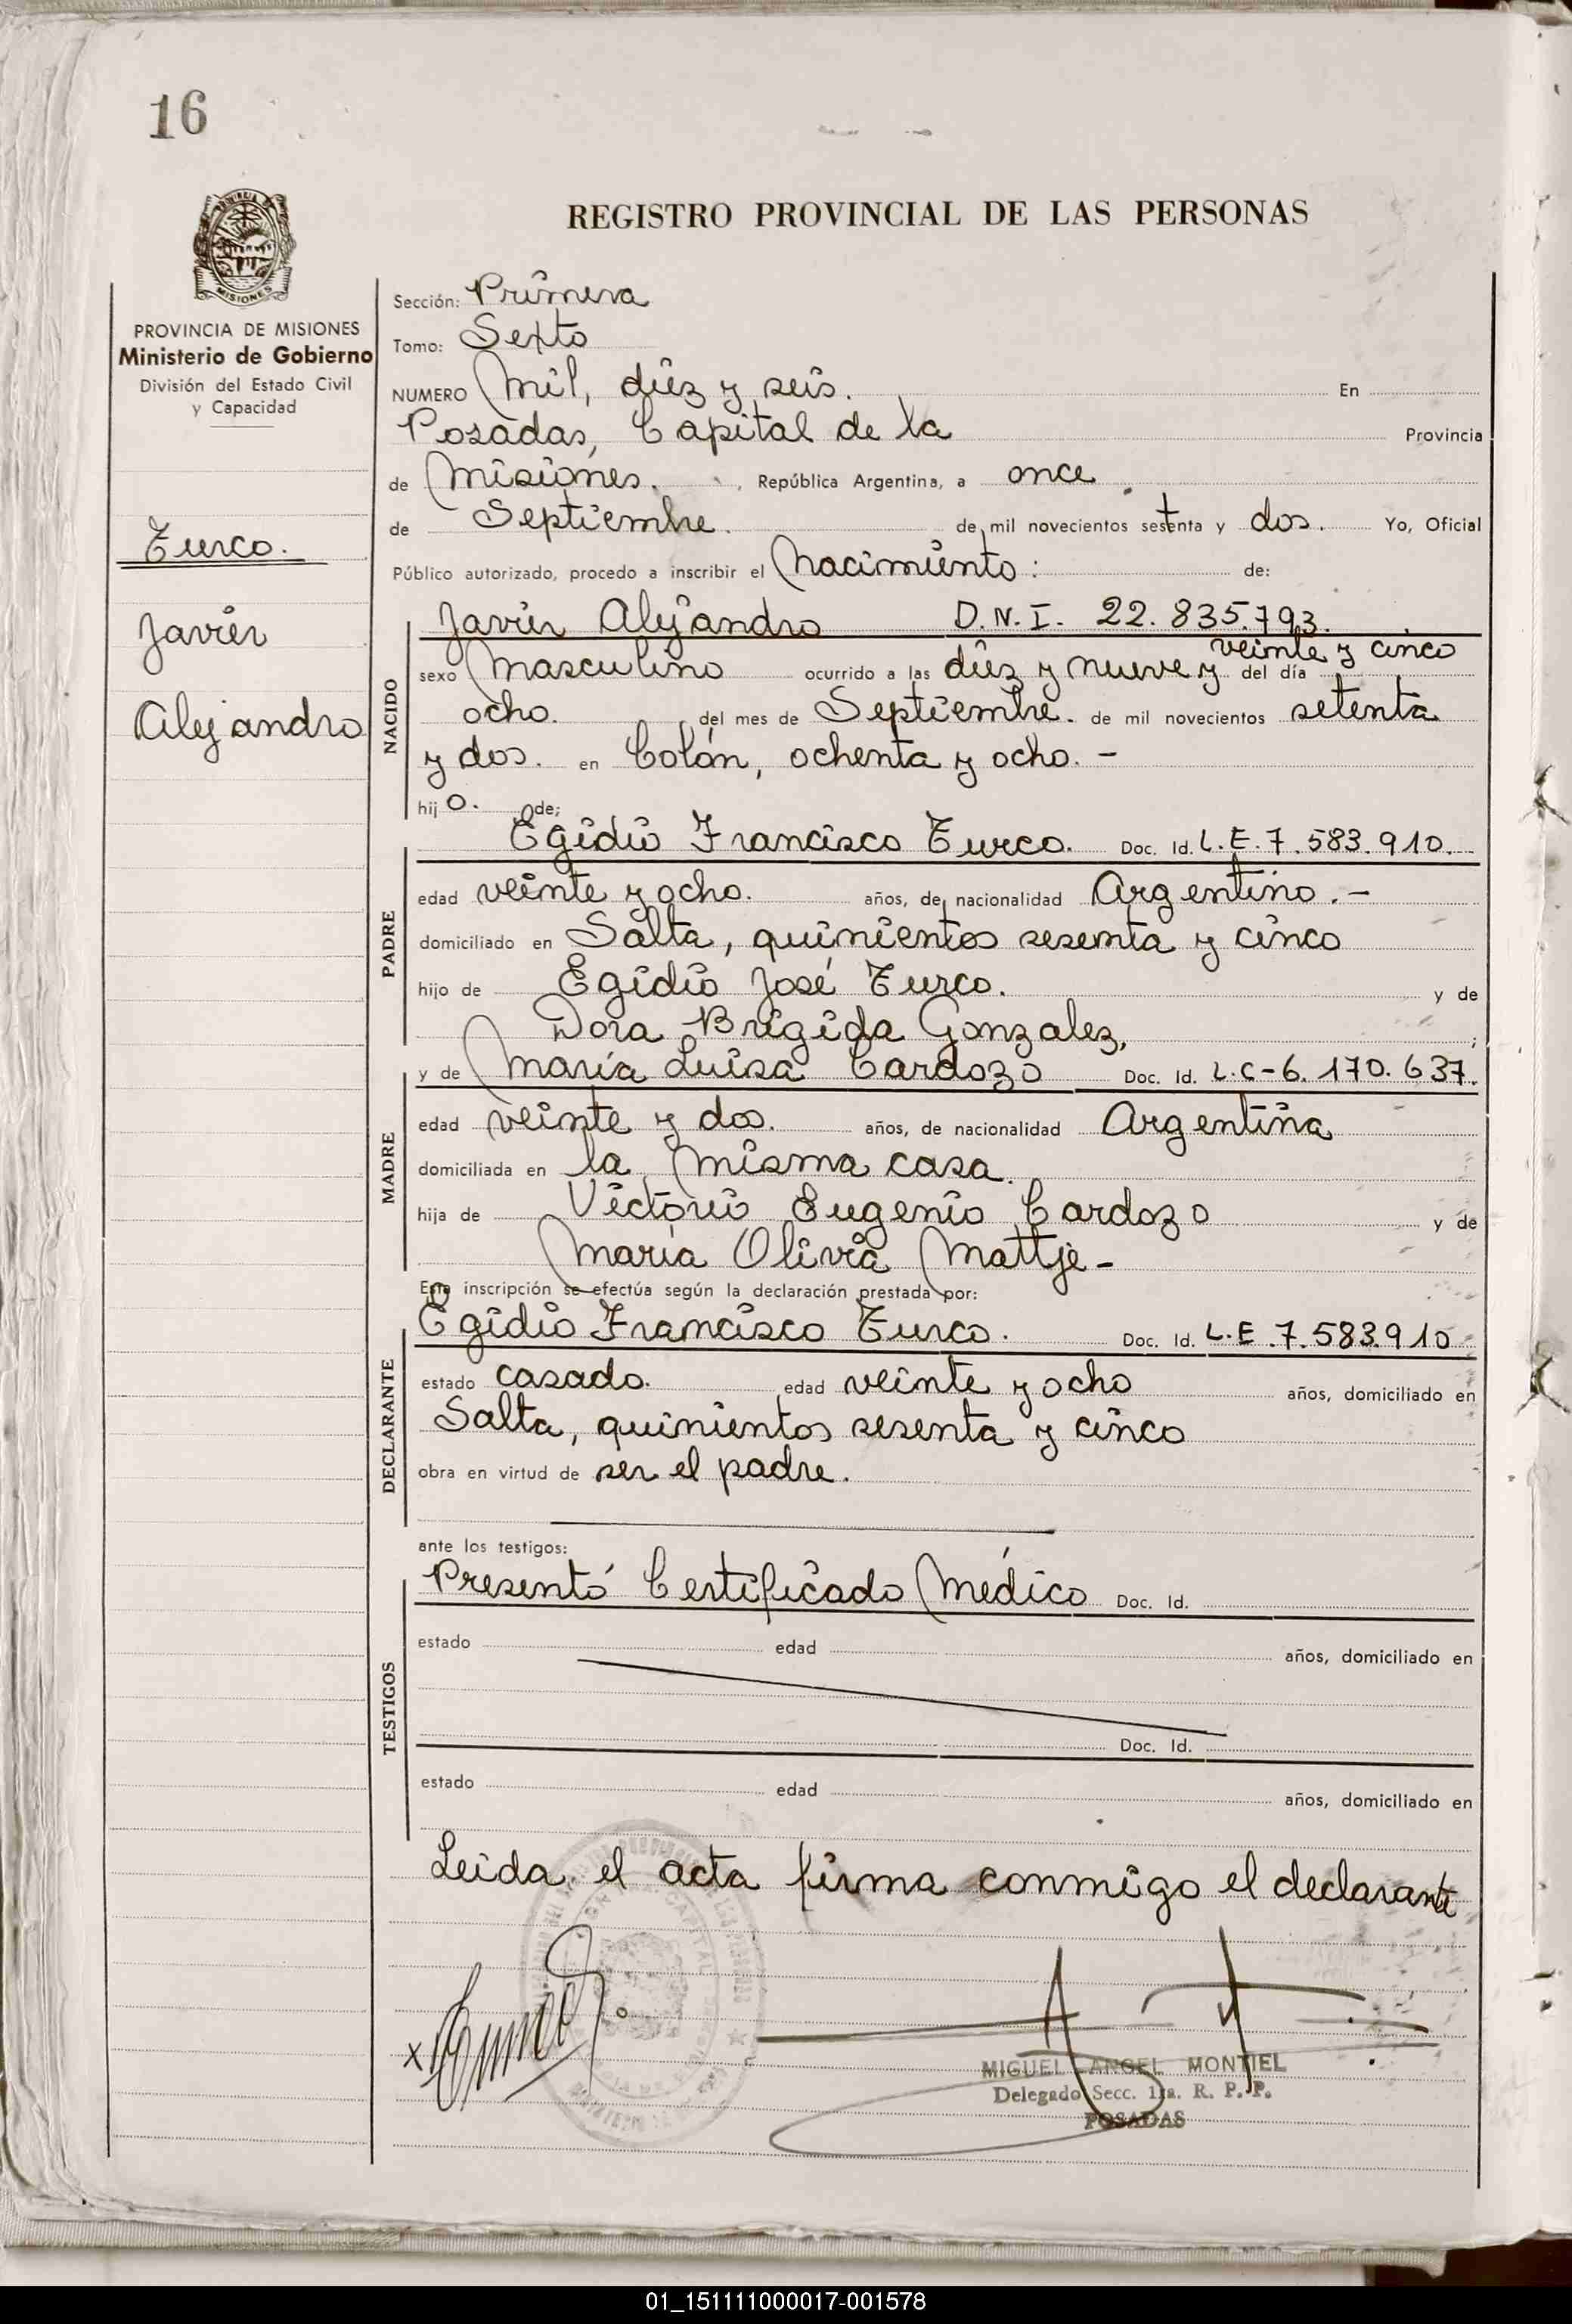 16
REGISTRO PROVINCIAL DE LAS PERSONAS
MISIONES
PROVINCIA DE MISIONES
Ministerio de Gobierno
División del Estado Civil
y Capacidad
Turco.
Javier
Alejandro
Sección: Primera
Tomo: Sexto
NUMERO Mil, diez y seis. En
Posadas, Capital de la Provincia
de Misiones. , República Argentina, a once
de Septiembre. de mil novecientos setenta y dos. Yo, Oficial
Público autorizado, procedo a inscribir el Nacimiento: de:
NACIDO
Javier Alejandro D.N.I. 22.835.793.
veinte y cinco
sexo Masculino ocurrido a las diez y nueve y del día
ocho. del mes de Septiembre. de mil novecientos setenta
y dos. en Colón, ochenta y ocho. -
hij o. de:
PADRE
Egidio Francisco Turco. Doc. Id. L.E. 7.583.910.
edad veinte y ocho. años, de nacionalidad Argentino. -
domiciliado en Salta, quinientos sesenta y cinco
hijo de Egidio José Turco. y de
Dora Brigida Gonzalez, ;
MADRE
y de María Luisa Cardozo Doc. Id. L.C-6.170.637.
edad veinte y dos. años, de nacionalidad Argentina
domiciliada en la misma casa.
hija de Victorio Eugenio Cardozo y de
María Olivia Mattje -
Esta inscripción se efectúa según la declaración prestada por:
DECLARANTE
Egidio Francisco Turco. Doc. Id. L.E. 7.583.910
estado casado. edad veinte y ocho años, domiciliado en
Salta, quinientos sesenta y cinco
obra en virtud de ser el padre.
ante los testigos:
TESTIGOS
Presentó Certificado Médico Doc. Id.
estado edad años, domiciliado en
Doc. Id.
estado edad años, domiciliado en
Leida el acta firma conmigo el declarante
MIGUEL ANGEL MONTIEL
Delegado Secc. 1ra. R. P. P.
POSADAS
01_151111000017-001578